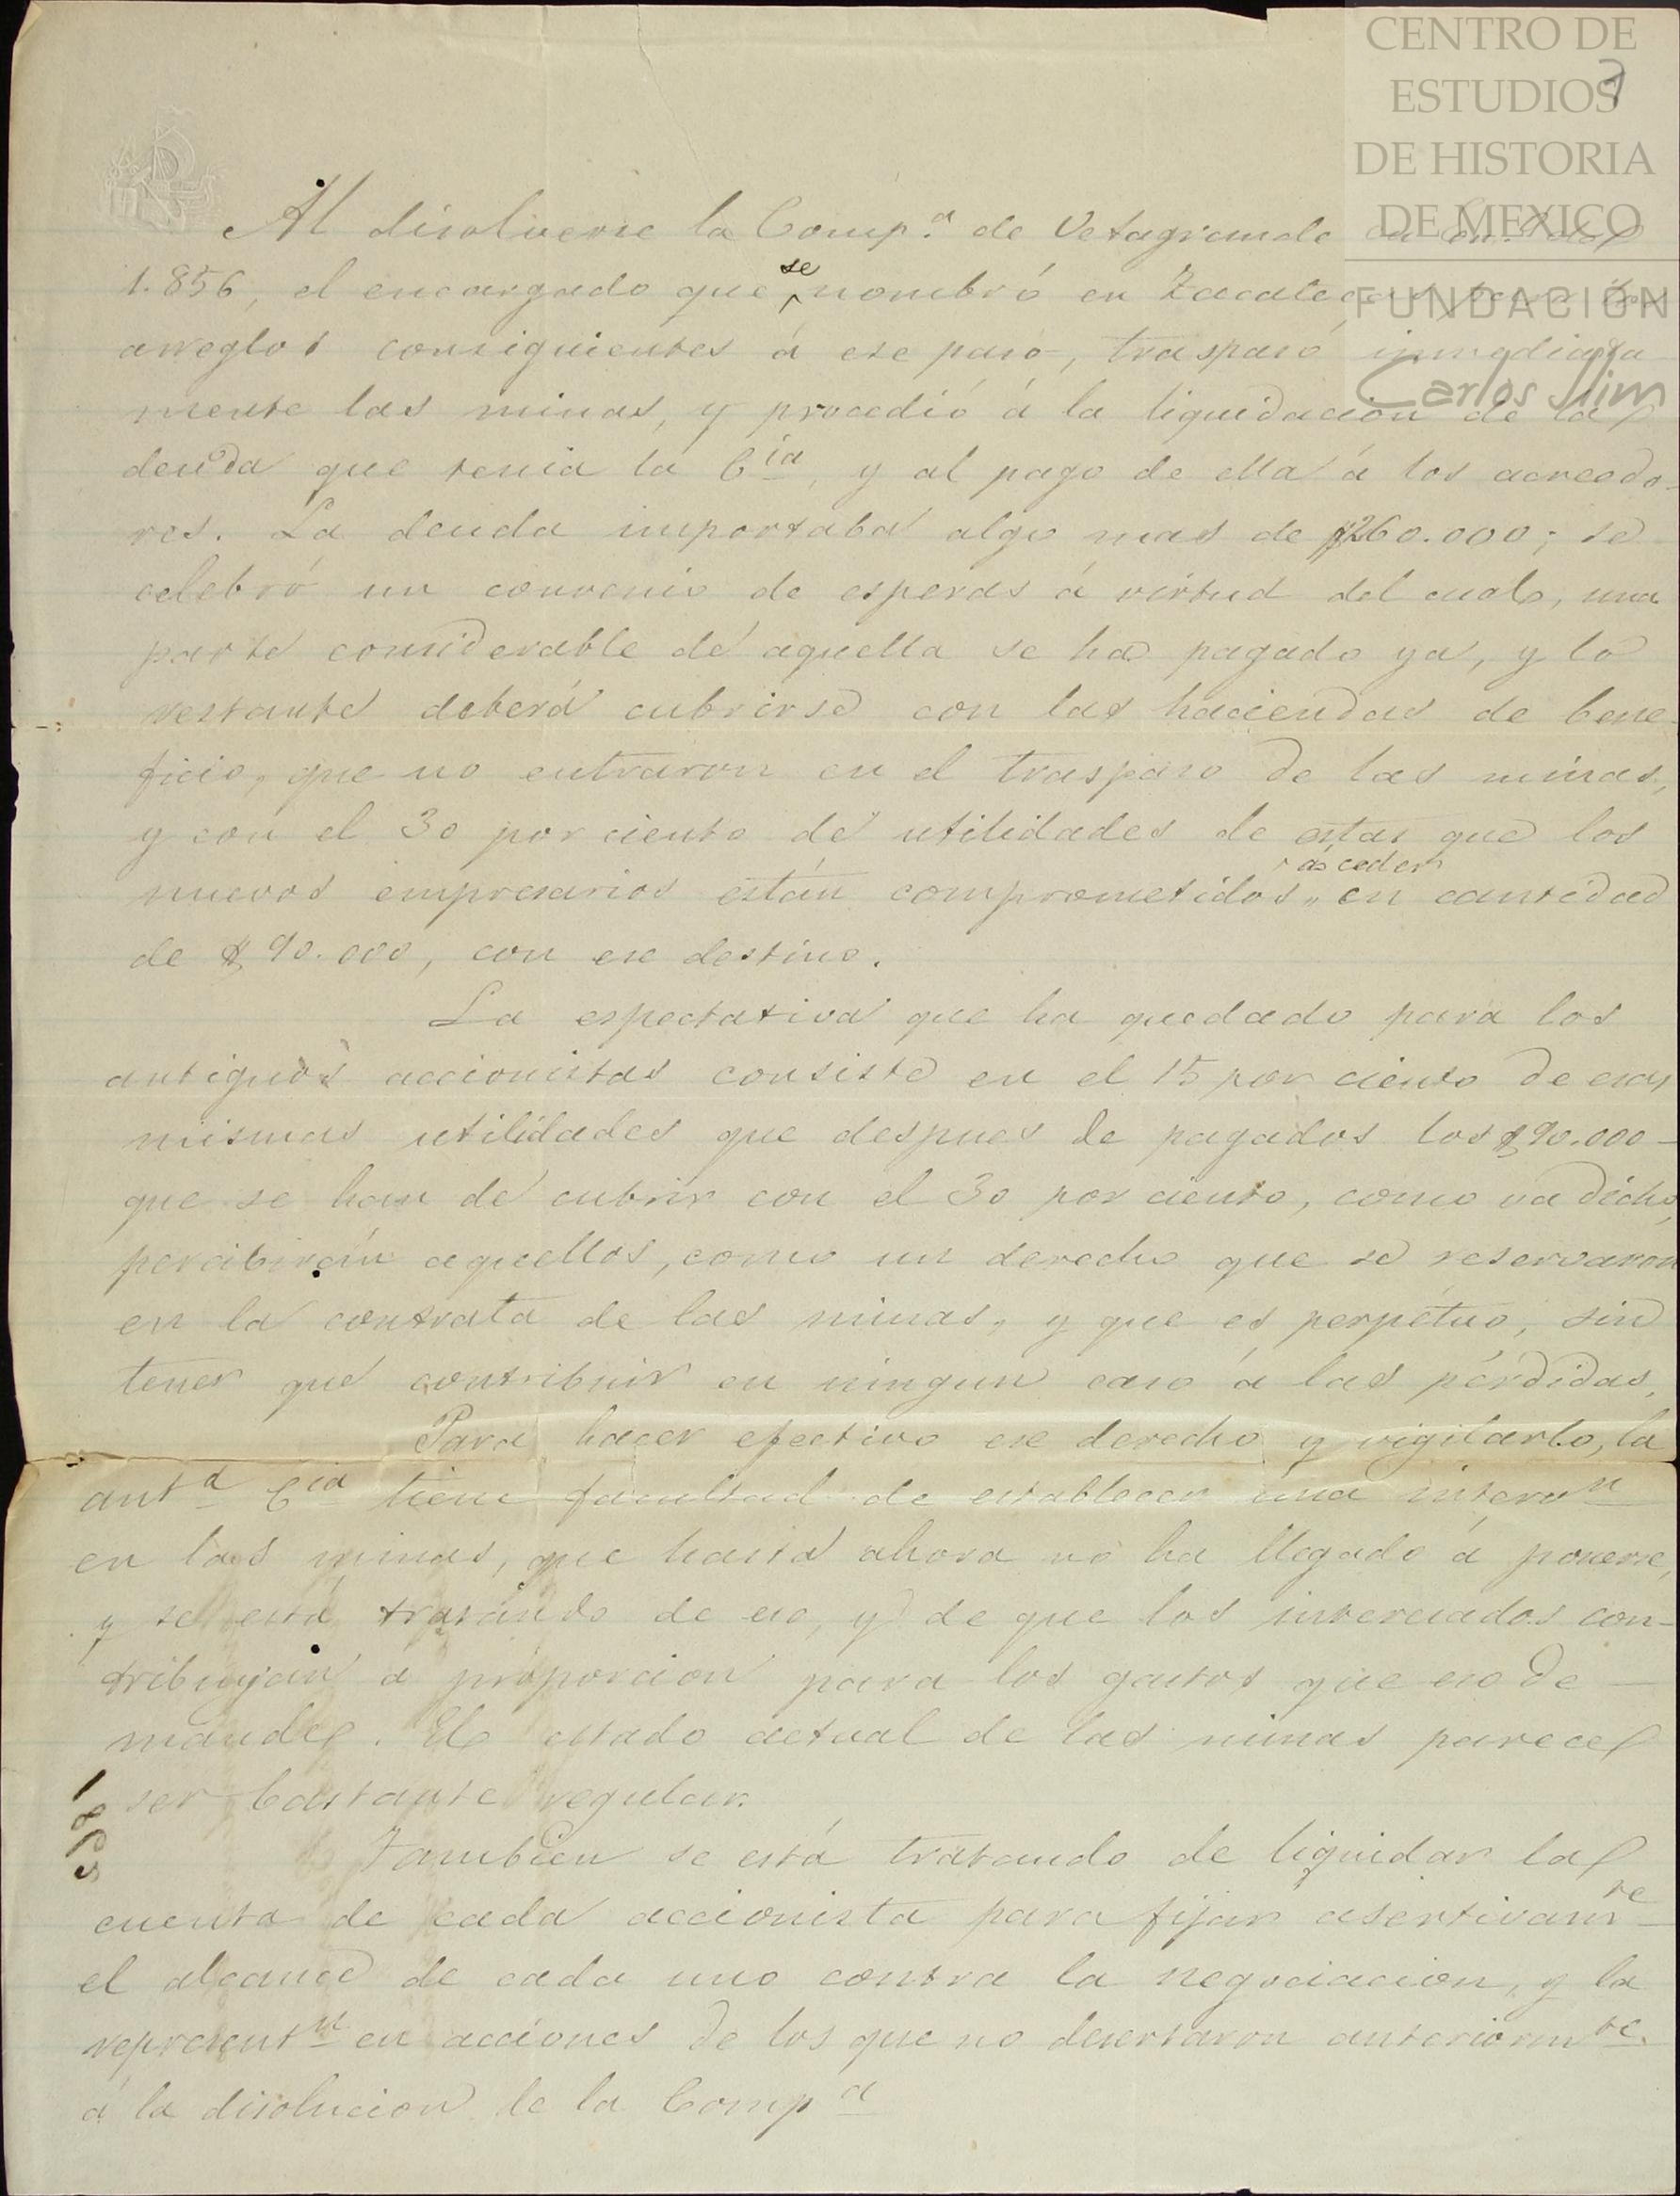 CENTRO DE
ESTUDIOS
DE HISTORIA
DE MEXICO
FUNDACIÓN
Carlos Slim
7
Al disolverse la Comp.ª de Vetagrande en del
1.856, el encargado que se nombró en Zacatecas para los
arreglos consiguientes á ese paso, traspasó inmediata
mente las minas, y procedió á la liquidacion de la
deuda que tenia la Cia, y al pago de ella á los acreedo-
res. La deuda importaba algo mas de $260.000; se
celebró un convenio de esperas á virtud del cual, una
parte considerable de aquella se ha pagado ya, y lo
restante deberá cubrirse con las haciendas de bene-
ficio, que no entraron en el traspaso de las minas,
y con el 30 por ciento de utilidades de estas que los
nuevos empresarios están comprometidos á ceder en cantidad
de $90.000, con ese destino.
La espectativa que ha quedado para los
antiguos accionistas consiste en el 15 por ciento de esas
mismas utilidades que despues de pagados los $90.000-
que se han de cubrir con el 30 por ciento, como va dicho,
percibirán aquellos, como un derecho que se reservaron
en la contrata de las minas, y que es perpétuo, sin
tener que contribuir en ningun caso á las pérdidas.
Para hacer efectivo ese derecho y vigilarlo, la
antª Cia tiene facultad de establecer una intervn
en las minas, que hasta ahora no ha llegado á ponerse,
y se está tratando de eso, y de que los interesados con-
tribuyan a proporcion para los gastos que eso de-
mande. El estado actual de las minas parece
ser bastante regular.
Tambien se está tratando de liquidar la
cuenta de cada accionista para fijar asertivamte
el alcance de cada uno contra la negociacion, y la
representn en acciones de los que no desertaron anteriormte
á la disolucion de la Compª